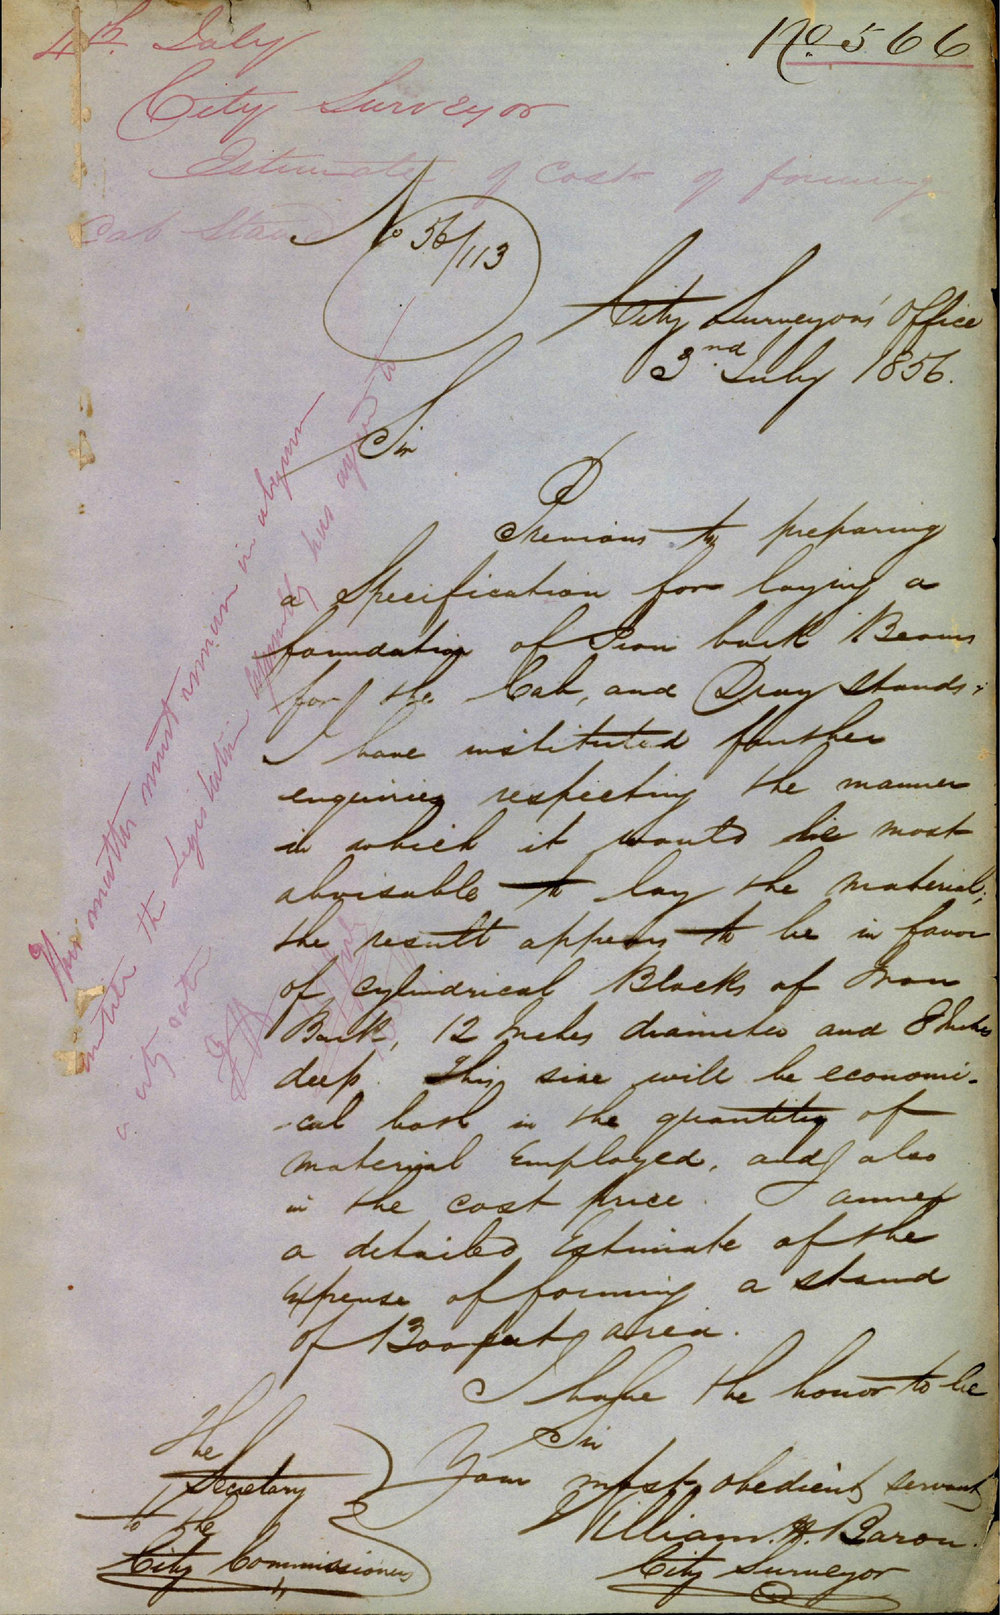 4th July
No 566
City Surveyor
Estimate of Cost of forming
Cab Stand
No 56/113
City Surveyors' Office
2nd July 1856.
Sir
Previous to preparing
a Specification for laying a
foundation of Iron bark Beams
for the Cab, and Dray Stands;
I have instituted further
enquiries respecting the manner
in which it would be most
advisable to lay the material;
the result appears to be in favor
of cylindrical Blocks of Iron
Bark, 12 Inches diameter and 8 Inches
deep. This size will be economi-
cal both in the quantity of
material Employed, and also
in the cost price. I annex
a detailed Estimate of the
expense of forming a stand
of 1300 feet area.
I have the honor to be
Sir
Your most obedient servant
William H. Baron.
City Surveyor
The
Secretary
to the
City Commissioners
This matter must remain in abeyance
until the Legislative Assembly has agreed to
a city rate